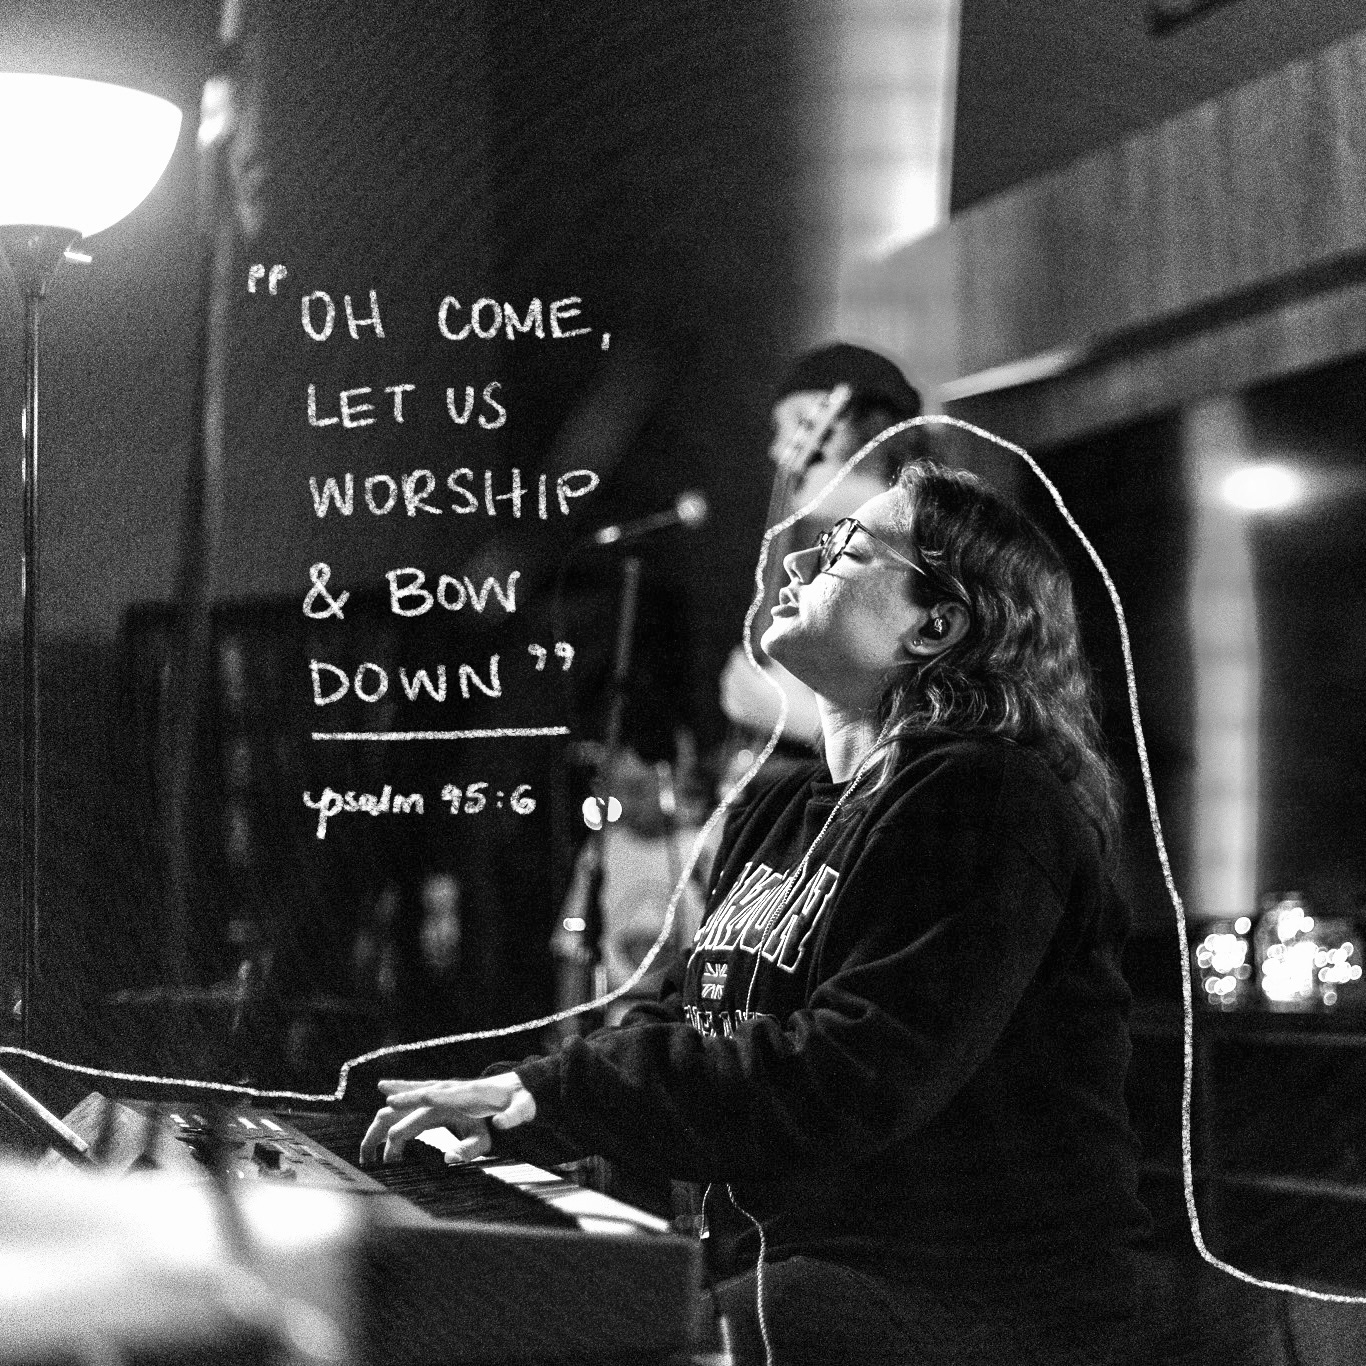 "OH COME,
LET US
WORSHIP
& BOW
DOWN"
psalm 95:6